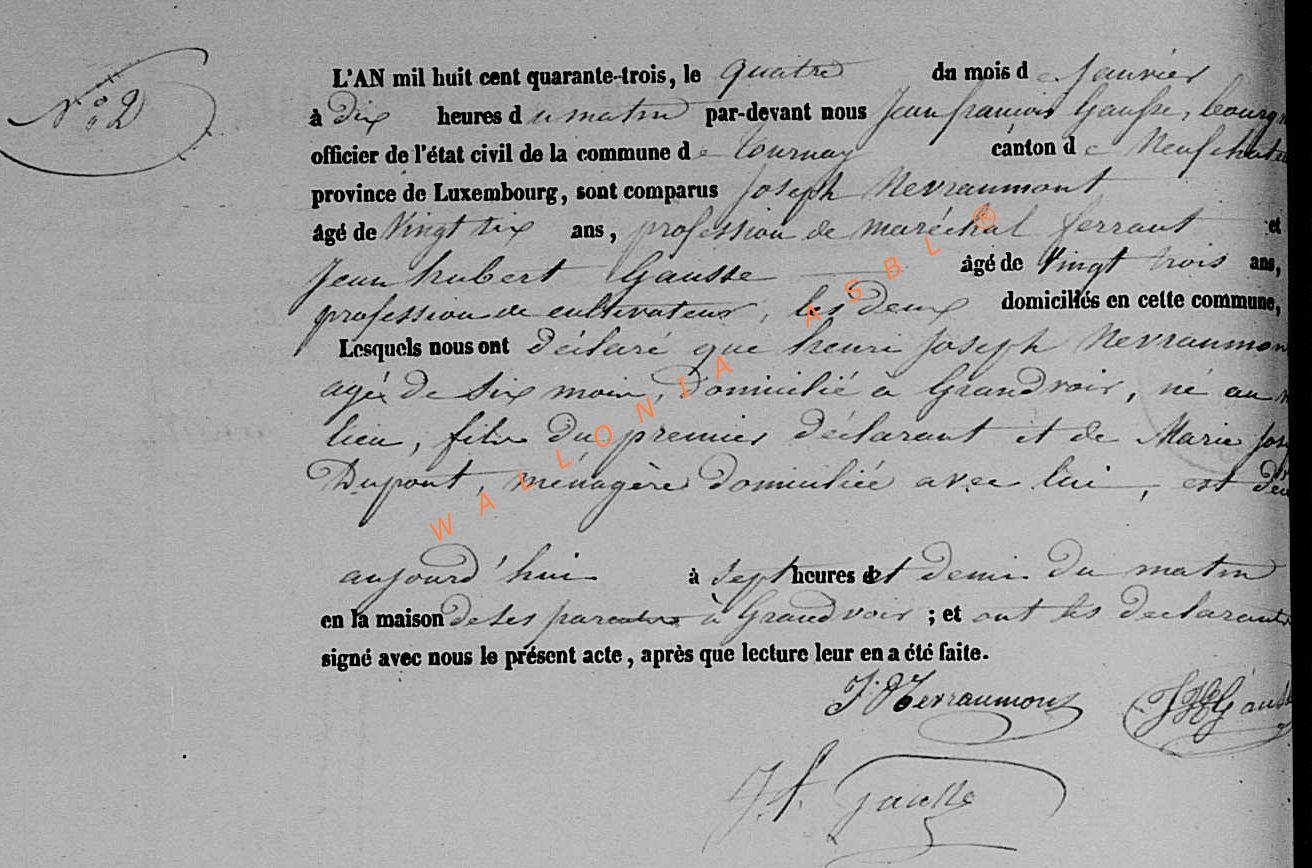 N° 2
L'AN mil huit cent quarante-trois, le quatre du mois de Janvier
à dix heures du matin par-devant nous Jean françois Gausse, bourg
officier de l'état civil de la commune de tournay canton de Neufchate
province de Luxembourg, sont comparus Joseph Nevraumont
âgé de Vingt six ans, profession de maréchal ferrant et
Jean hubert Gausse âgé de Vingt trois ans,
profession de cultivateur, les deux domiciliés en cette commune,
Lesquels nous ont déclaré que henri Joseph Nevraumon
agé de Six mois, domicilié à Grandvoir, né au m
lieu, fils du premier déclarant et de Marie Jos
Dupont, ménagère domiciliée avec lui, est déc
aujourd'hui à sept heures et demie du matin
en la maison de ses parents à Grandvoir ; et ont les déclarants
signé avec nous le présent acte, après que lecture leur en a été faite.
J. Nevraumont
JH Gauss
J f. Gausse
WALLONIA ASBL ®